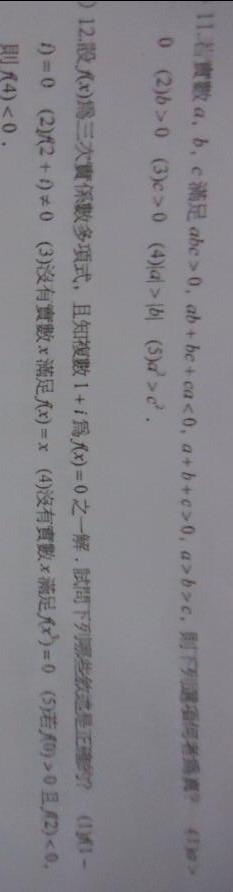 11.若實數 a，b，c 滿足 abc>0，ab+bc+ca<0，a+b+c>0，a>b>c，則下列選項何者為真？ (1)a>
0 (2)b>0 (3)c>0 (4)|a|>|b| (5)a²>c²．
) 12.設 f(x)為三次實係數多項式，且知複數 1+i 為 f(x)=0 之一解．試問下列哪些敘述是正確的？ (1)f(1-
i)=0 (2)f(2+i)≠0 (3)沒有實數 x 滿足 f(x)=x (4)沒有實數 x 滿足 f(x³)=0 (5)若 f(0)>0 且 f(2)<0，
則 f(4)<0．